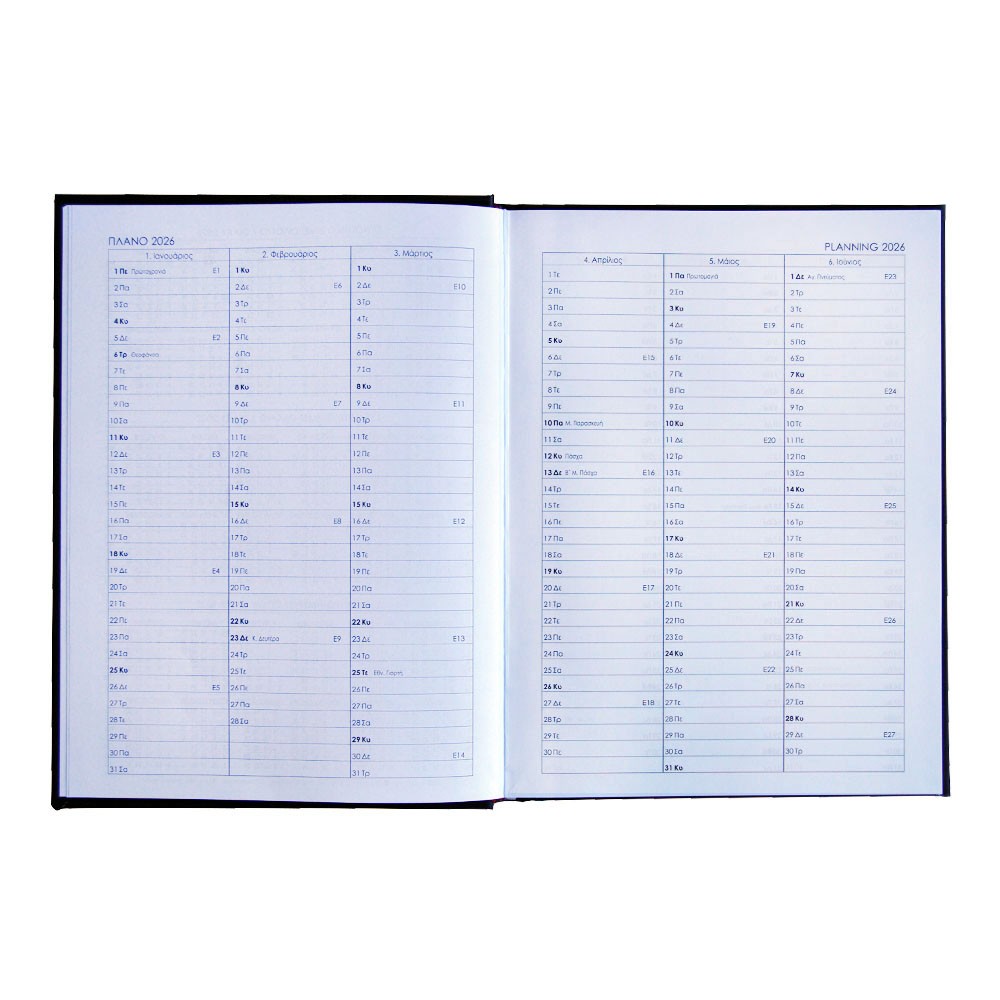 ΠΛΑΝΟ 2026
1. Ιανουάριος
1 Πε Πρωτοχρονιά E1
2 Πα
3 Σα
4 Κυ
5 Δε E2
6 Τρ Θεοφάνεια
7 Τε
8 Πε
9 Πα
10 Σα
11 Κυ
12 Δε E3
13 Τρ
14 Τε
15 Πε
16 Πα
17 Σα
18 Κυ
19 Δε E4
20 Τρ
21 Τε
22 Πε
23 Πα
24 Σα
25 Κυ
26 Δε E5
27 Τρ
28 Τε
29 Πε
30 Πα
31 Σα
2. Φεβρουάριος
1 Κυ
2 Δε E6
3 Τρ
4 Τε
5 Πε
6 Πα
7 Σα
8 Κυ
9 Δε E7
10 Τρ
11 Τε
12 Πε
13 Πα
14 Σα
15 Κυ
16 Δε E8
17 Τρ
18 Τε
19 Πε
20 Πα
21 Σα
22 Κυ
23 Δε Κ. Δευτέρα E9
24 Τρ
25 Τε
26 Πε
27 Πα
28 Σα
3. Μάρτιος
1 Κυ
2 Δε E10
3 Τρ
4 Τε
5 Πε
6 Πα
7 Σα
8 Κυ
9 Δε E11
10 Τρ
11 Τε
12 Πε
13 Πα
14 Σα
15 Κυ
16 Δε E12
17 Τρ
18 Τε
19 Πε
20 Πα
21 Σα
22 Κυ
23 Δε E13
24 Τρ
25 Τε Εθν. Γιορτή
26 Πε
27 Πα
28 Σα
29 Κυ
30 Δε E14
31 Τρ
PLANNING 2026
4. Απρίλιος
1 Τε
2 Πε
3 Πα
4 Σα
5 Κυ
6 Δε E15
7 Τρ
8 Τε
9 Πε
10 Πα Μ. Παρασκευή
11 Σα
12 Κυ Πάσχα
13 Δε Β΄ Μ. Πάσχα E16
14 Τρ
15 Τε
16 Πε
17 Πα
18 Σα
19 Κυ
20 Δε E17
21 Τρ
22 Τε
23 Πε
24 Πα
25 Σα
26 Κυ
27 Δε E18
28 Τρ
29 Τε
30 Πε
5. Μάιος
1 Πα Πρωτομαγιά
2 Σα
3 Κυ
4 Δε E19
5 Τρ
6 Τε
7 Πε
8 Πα
9 Σα
10 Κυ
11 Δε E20
12 Τρ
13 Τε
14 Πε
15 Πα
16 Σα
17 Κυ
18 Δε E21
19 Τρ
20 Τε
21 Πε
22 Πα
23 Σα
24 Κυ
25 Δε E22
26 Τρ
27 Τε
28 Πε
29 Πα
30 Σα
31 Κυ
6. Ιούνιος
1 Δε Αγ. Πνεύματος E23
2 Τρ
3 Τε
4 Πε
5 Πα
6 Σα
7 Κυ
8 Δε E24
9 Τρ
10 Τε
11 Πε
12 Πα
13 Σα
14 Κυ
15 Δε E25
16 Τρ
17 Τε
18 Πε
19 Πα
20 Σα
21 Κυ
22 Δε E26
23 Τρ
24 Τε
25 Πε
26 Πα
27 Σα
28 Κυ
29 Δε E27
30 Τρ